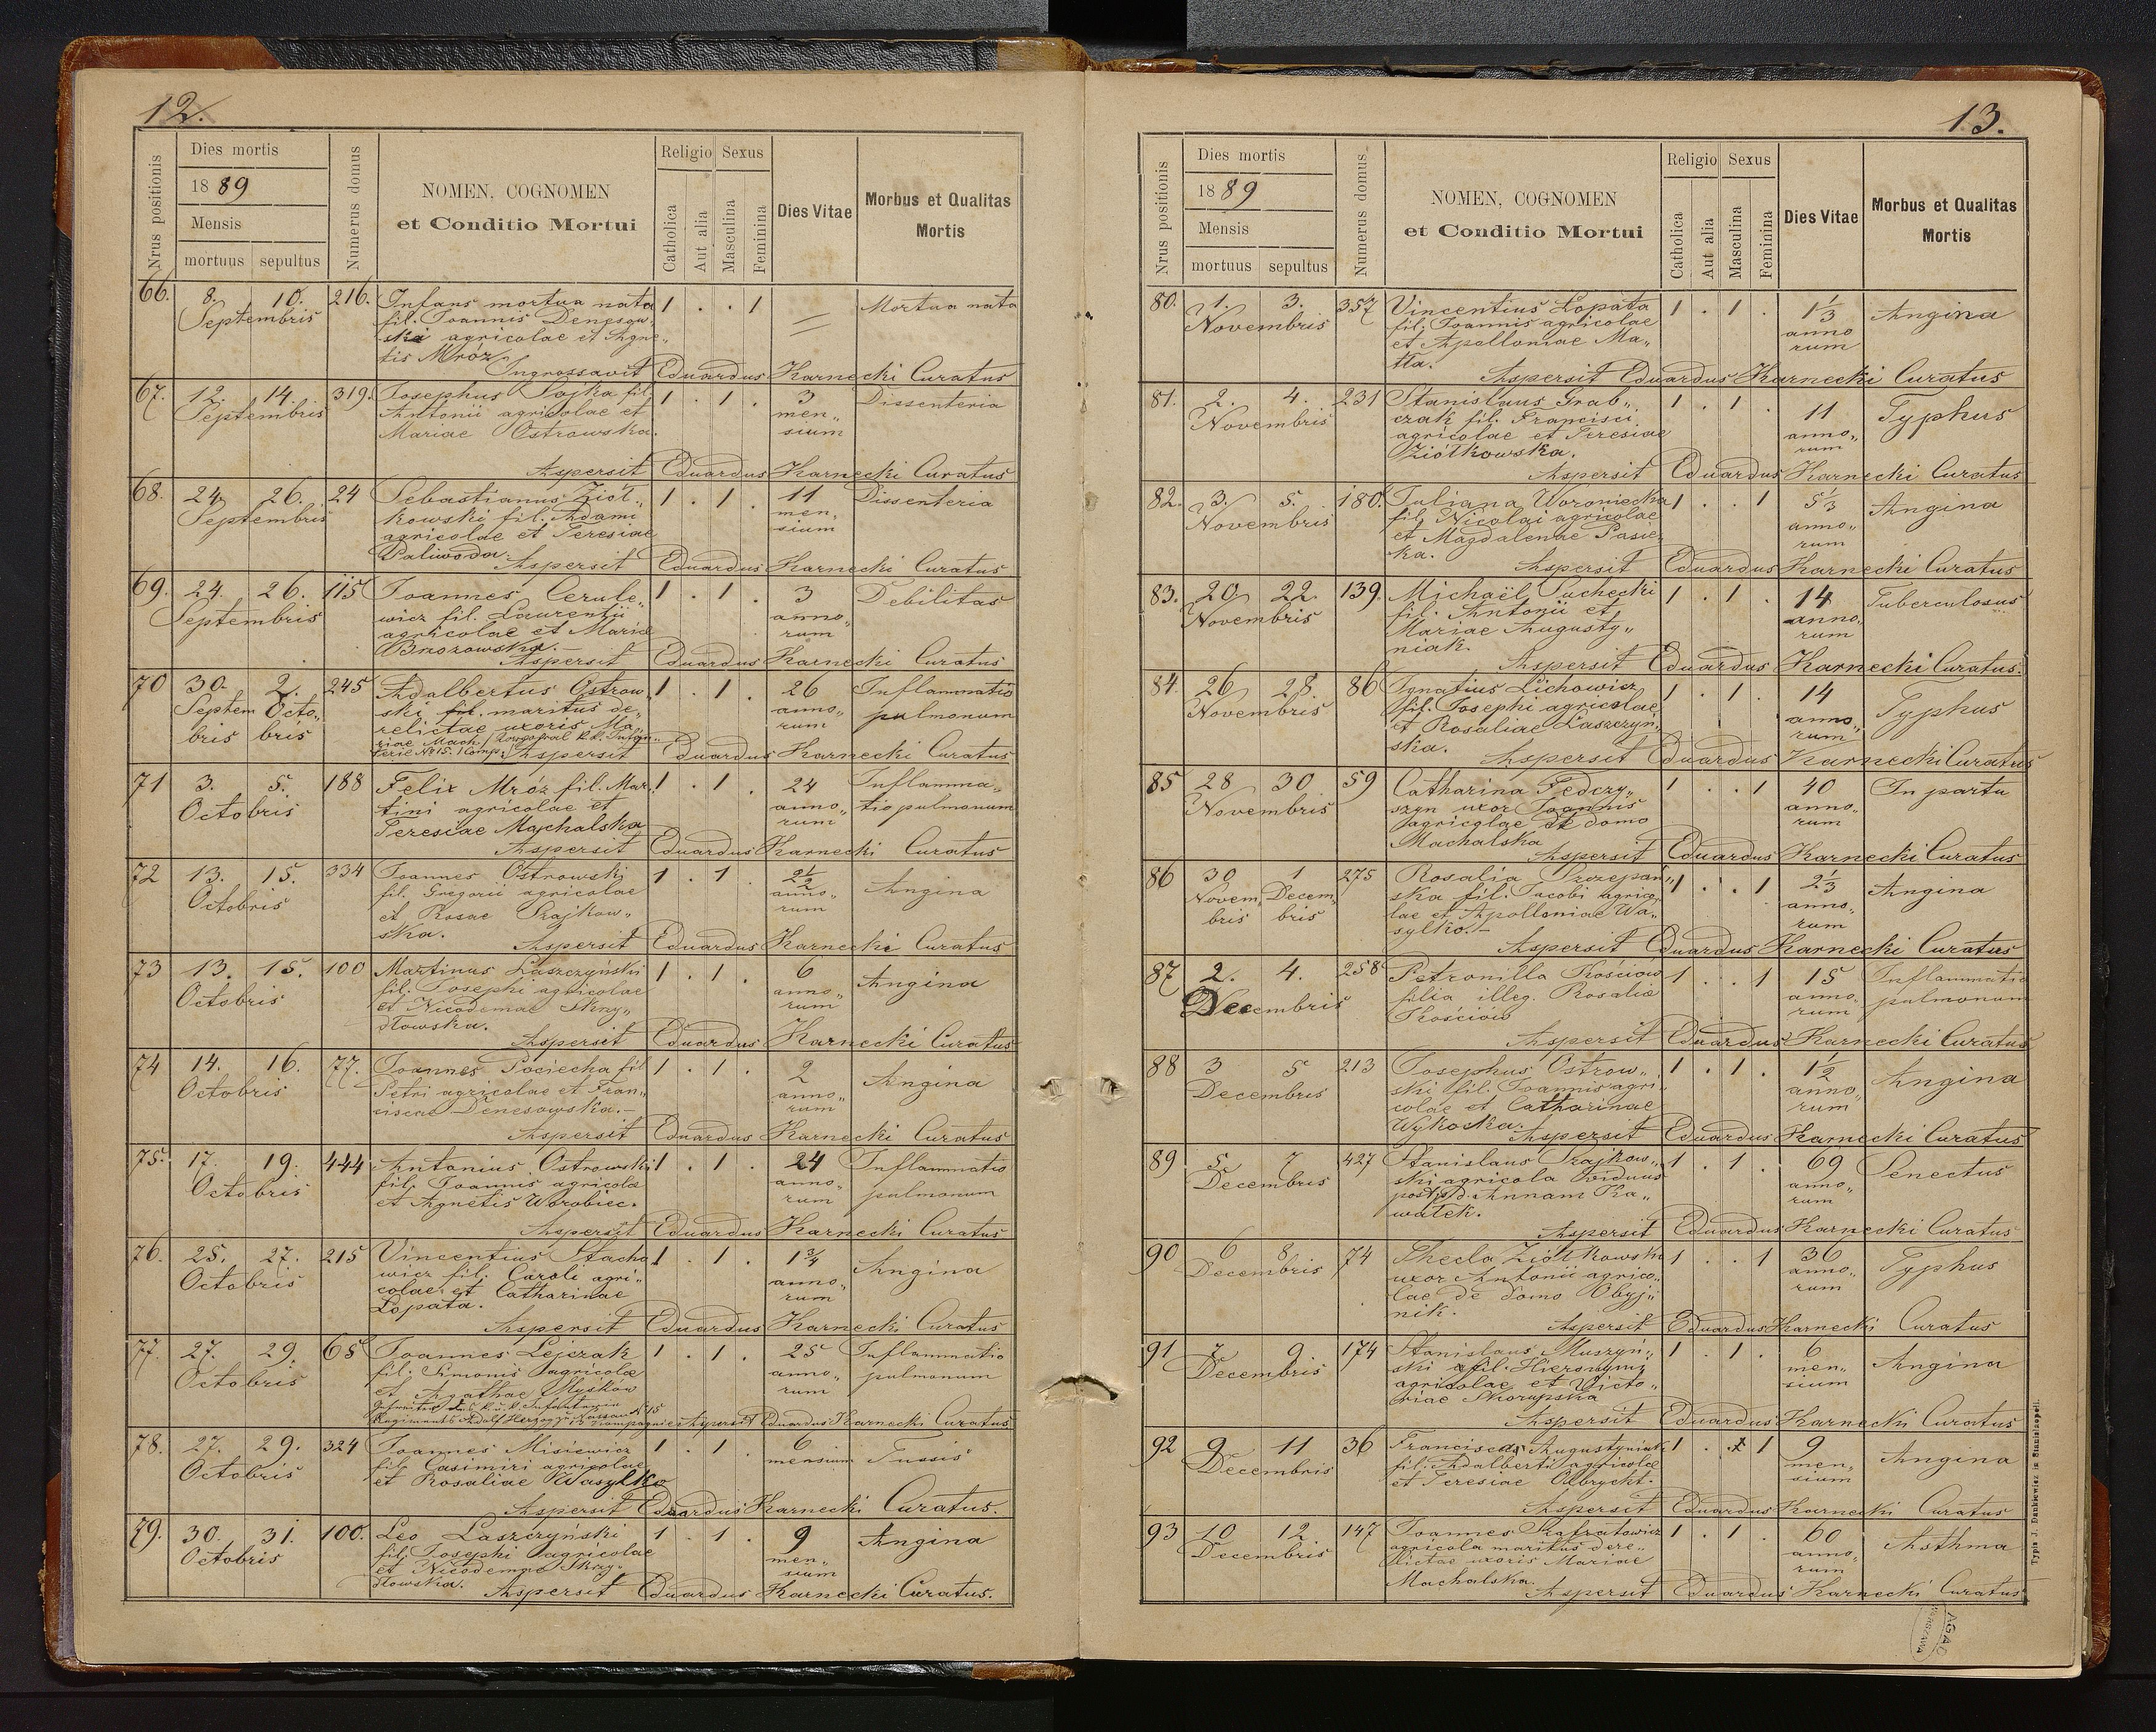 12.
Nrus positionis
Dies mortis
1889
Mensis
mortuus sepultus
Numerus domus
NOMEN, COGNOMEN
et Conditio Mortui
Religio Sexus
Catholica
Aut alia
Masculina
Feminina
Dies Vitae
Morbus et Qualitas
Mortis
66. 8. 10. 216. Infans mortua nata 1 . . 1 Mortua nata
Septembris fil. Joannis Denesow„
ski agricolae et Agne„
tis Mróz.
Ingrossavit Eduardus Karnecki Curatus
67. 12. 14. 319. Josephus Sojka fil. 1 . 1 . 3 Dissenteria
Septembris Antonii agricolae et men„
Mariae Ostrowska. sium
Aspersit Eduardus Karnecki Curatus
68. 24 26. 24 Sebastianus Ziół„ 1 . 1 . 11 Dissenteria
Septembris kowski fil. Adami men„
agricolae et Teresiae sium
Paliwoda.
Aspersit Eduardus Karnecki Curatus
69. 24. 26. 115 Joannes Cerule„ 1 . 1 . 3 Debilitas
Septembris wicz fil. Laurentii anno„
agricolae et Mariae rum
Brzozowska.
Aspersit Eduardus Karnecki Curatus
70 30. 2. 245 Adalbertus Ostrow„ 1 . 1 . 26 Inflammatio
Septem Octo„ ski fil. maritus de„ anno„ pulmonum
bris bris relictae uxoris Ma„ rum
riae Mach.
terie № 15. 1 Comp. Aspersit Eduardus Karnecki Curatus
71 3. 5. 188 Felix Mróz fil. Mar„ 1 . 1 . 24 Inflamma„
Octobris tini agricolae et anno„ tio pulmonum
Teresiae Machalska rum
Aspersit Eduardus Karnecki Curatus
72 13. 15. 334 Joannes Ostrowski 1 . 1 . 2½ Angina
Octobris fil. Gregorii agricolae anno„
et Rosae Szajkow„ rum
ska.
Aspersit Eduardus Karnecki Curatus
73 13. 15. 100 Martinus Łaszczyński 1 . 1 . 6 Angina
Octobris fil. Josephi agricolae anno„
et Nicodemae Skrzy„ rum
dłowska.
Aspersit Eduardus Karnecki Curatus
74 14. 16. 77. Joannes Pociecha fil 1 . 1 . 2 Angina
Octobris Petri agricolae et Fran„ anno„
ciscae Denesowska. rum
Aspersit Eduardus Karnecki Curatus
75. 17. 19. 444 Antonius Ostrowski 1 . 1 . 24 Inflammatio
Octobris fil. Joannis agricolae anno„ pulmonum
et Agnetis Worobiec. rum
Aspersit Eduardus Karnecki Curatus
76. 25. 27. 215 Vincentius Stacho 1 . 1 . 1¾ Angina
Octobris wicz fil. Caroli agri„ anno„
colae et Catharinae rum
Łopata.
Aspersit Eduardus Karnecki Curatus
77. 27. 29. 65 Joannes Lejczak 1 . 1 . 25 Inflammatio
Octobris fil. Simonis agricolae anno„ pulmonum
et Agathae Myśków rum
Gefreiter k. u. k. Infanterie
Regiments Adolf Herzog zu Nassau № 15 Aspersit Eduardus Karnecki Curatus
78. 27. 29. 324 Joannes Misiewicz 1 . 1 . 6 Tussis
Octobris fil. Casimiri agricolae mensium
et Rosaliae Wasylko
Aspersit Eduardus Karnecki Curatus.
79. 30. 31. 100. Leo Łaszczyński 1 . 1 . 9 Angina
Octobris fil. Josephi agricolae men„
et Nicodemae Skrzy„ sium
dłowska.
Aspersit Eduardus Karnecki Curatus.
13.
Nrus positionis
Dies mortis
1889
Mensis
mortuus sepultus
Numerus domus
NOMEN, COGNOMEN
et Conditio Mortui
Religio Sexus
Catholica
Aut alia
Masculina
Feminina
Dies Vitae
Morbus et Qualitas
Mortis
80. 1. 3. 357 Vincentius Łopata 1 . 1 . 1⅓ Angina
Novembris fil. Joannis agricolae anno
et Apolloniae Ma„ rum
tła.
Aspersit Eduardus Karnecki Curatus
81. 2. 4. 231 Stanislaus Grab„ 1 . 1 . 11 Typhus
Novembris czak fil. Francisci anno„
agricolae et Teresiae rum
Ziółkowska.
Aspersit Eduardus Karnecki Curatus
82. 3. 5. 180. Juliana Woroniecka 1 . . 1 5⅓ Angina
Novembris fil. Nicolai agricolae anno„
et Magdalenae Pasie„ rum
ka.
Aspersit Eduardus Karnecki Curatus
83. 20. 22. 139. Michaël Suchecki 1 . 1 . 14 Tuberculosus
Novembris fil. Antonii et anno„
Mariae Augusty„ rum
niak.
Aspersit Eduardus Karnecki Curatus.
84. 26 28. 86 Ignatius Lichowicz 1 . 1 . 14 Typhus
Novembris fil. Josephi agricolae anno„
et Rosaliae Łaszczyń„ rum
ska.
Aspersit Eduardus Karnecki Curatus
85 28 30 59 Catharina Fedczy„ 1 . . 1 40 In partu
Novembris szyn uxor Joannis anno„
agricolae de domo rum
Machalska
Aspersit Eduardus Karnecki Curatus
86 30 1 275 Rosalia Szczepan„ 1 . . 1 2⅓ Angina
Novem Decem„ ska fil. Jacobi agrico„ anno„
bris bris lae et Apolloniae Wa„ rum
sylko.
Aspersit Eduardus Karnecki Curatus
87 2. 4. 258 Petronilla Kościow 1 . . 1 15 Inflammatio
Decembris filia illeg. Rosalia anno„ pulmonum
Kościow rum
Aspersit Eduardus Karnecki Curatus
88 3 5 213 Josephus Ostrow„ 1 . 1 . 1½ Angina
Decembris ski fil. Joannis agri„ anno„
colae et Catharinae rum
Wykoska.
Aspersit Eduardus Karnecki Curatus
89 5 7 427 Stanislaus Szajkow„ 1 . 1 . 69 Senectus
Decembris ski agricola viduus anno„
post d. Annam Ka„ rum
wałek.
Aspersit Eduardus Karnecki Curatus
90 6 8 74 Thecla Ziółkowska 1 . . 1 36 Typhus
Decembris uxor Antonii agrico„ anno„
lae de domo Obyj„ rum
nik.
Aspersit Eduardus Karnecki Curatus
91 7 9 174 Stanislaus Muszyń„ 1 . 1 . 6 Angina
Decembris ski fil. Hieronymi men„
agricolae et Victo„ sium
riae Skorupska
Aspersit Eduardus Karnecki Curatus
92 9 11 36 Francisca Augustyniak 1 . 1 9 Angina
Decembris fil. Adalberti agricolae men„
et Teresiae Olbrycht. sium
Aspersit Eduardus Karnecki Curatus
93 10 12 147 Joannes Szafratowicz 1 . 1 . 60 Asthma
Decembris agricola maritus dere„ anno„
lictae uxoris Mariae rum
Machalska.
Aspersit Eduardus Karnecki Curatus
Typis J. Dankiewicz in Stanislaopoli.
AGAD
WARSZAWA